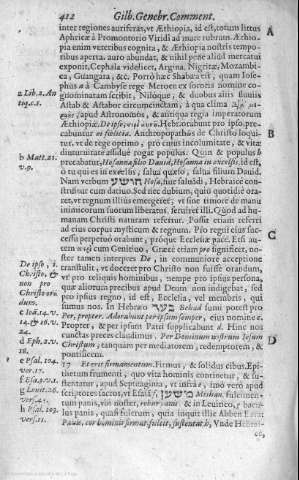 412 Gilb. Genebr. Comment.
inter regiones auriferas, vt Æthiopia, id est, totius littus
Aphricæ à Promontorio Viridi ad mare rubrum. Æthio-
pia enim veteribus cognita, & Æthiopia nostris tempo-
ribus aperta auro abundat, & nihil pene aliud mercatui
exponit, Cephala videlicet, Angina, Nigritæ, Mozambi-
ea, Guangara, &c. Porrò hæc Shaba est, quam Iose-
phus à Cambyse rege Meroen ex sororis nomine
scribit, Niloque, & duobus aliis fluuiis
Astab & Astabor circumcinctam, à qua clima
apud Astronomos, & antiqua regia imperatorum
Æthiopiæ. De ipso, vel pro eo. Hebræi
cabuntur ei fœlicia. Anthropopathôs de Christo loqui-
tur, vt de rege optimo, pro cuius incolumitate, & vitæ
diuturnitate assiduè rogat populus. Quin & populus b
precabatur, Hosanna filio Dauid, Hosanna in excelsis. id est,
ô tu qui es in excelsis, salua quæso, salua filium Dauid.
Nam verbum הושיע Hosia, siue saluâdi, Hebraicè con-
struitur cum datiuo. Sed nec dubium, quin quotidie orá-
ret, vt regnum illius emergeret; vt sine timore de manu
inimicorum suorum liberatus seruiret illi. Quod ad hu-
manam Christi naturam refertur. Possis etiam referri
ad eius corpus mysticum & regnum. Pro regni eius suc-
cessu perpetuò orabunt, próque Ecclesiæ pace. Etsi au-
tem cum Genitiuo, Græcè etiam pro significet, no-
ster tamen interpres De, in communiore acceptione
transtulit, vt doceret pro Christo non fuisse orandum,
vt pro reliquis hominibus, nempe pro ipsius persona,
quæ aliorum precibus apud Deum non indigebat, sed
pro ipsius regno, id est, Ecclesia, vel membris, qui
sumus nos. In Hebræo בעד Behad sumi potest pro
Per, propter. Adorabunt per ipsum semper, eius nomine c.
Propter, & per ipsum Patri supplicabunt d. Hinc nos
cunctas preces claudimus, Per Dominum nostrum Iesum
Christum, tanquam per mediatorem, redemptorem, &
pontificem.
17 Et erit firmamentum. Firmus, & solidus cibus. Epi-
thetum frumenti, quo vita hominis continetur, & su-
stentatur, apud Septuaginta, vt infrà e, imò verò apud
scriptores sacros, vt Esaiæ f, משען Mishan, fulcimen-
tum panis, vox noster, robur panis: & in Leuitico, g bacu-
lus panis, quasi fulcrum, quia inquit ille Abben Ezra:
Panis, cor hominis firmat, fulcit, sustentat h, Vnde Hebræi-
cè,
A
B
C
D
a Lib. 2. An
tiq. c. 5.
b Matt. 21.
v. 9.
De ipso, i.
Christo, &
non pro
Christo oran-
dum.
c Ioã. 14. v.
14. & 16. v.
24.
d Eph. 2. v.
18.
e Psal. 104.
ver. 17.
f Esa. 3. v. 1.
g Leuit. 26.
vers. 26.
h Psal. 103.
vers. 15.